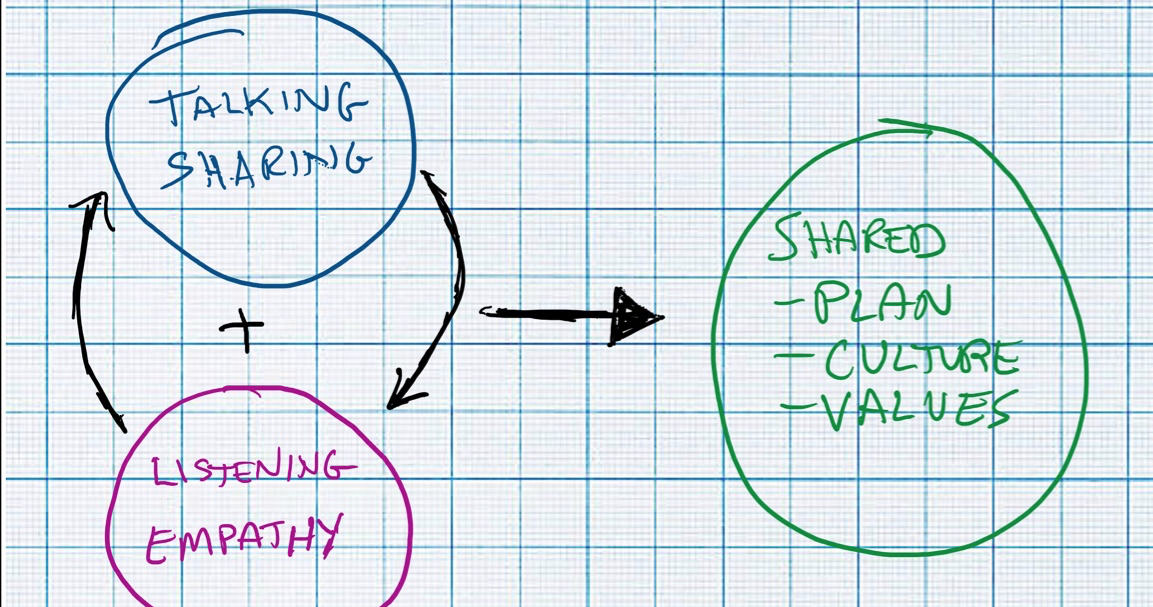 TALKING
SHARING
+
LISTENING
EMPATHY
SHARED
- PLAN
- CULTURE
- VALUES